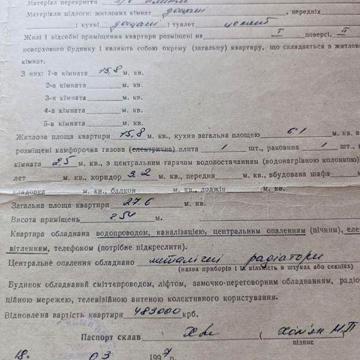 Матеріал перекриття з/б плити
Матеріали підлоги: житлових кімнат дощаті, передніх
, кухні дощаті; туалет
Жилі і відсобні приміщення квартири розміщені на І поверсі, ІІ
поверхового будинку і являють собою окрему (загальну) квартиру, що складається з житлових
кімнат.
З них: 1-а кімната 15,8 м. кв.
2-а кімната м. кв.
3-я кімната м. кв.
4-а кімната м. кв.
5-а кімната м. кв.
Житлова площа квартири 15,8 м. кв., кухня загальною площею 6,1 м. кв.
розміщені камфорочна газова (електрична) плита 1 шт., раковина 1 шт.
кімната 2,5 м. кв., з центральним гарячим водопостачанням (водонагрівною колонкою)
лет м. кв., коридор 3,2 м. кв., передня м. кв., вбудована шафа
кладовки м. кв., балкон м. кв., лоджія м. кв.
Загальна площа квартири 27,6 м. кв.
Висота приміщень 2,54 м.
Квартира обладнана водопроводом, каналізацією, центральним опаленням (пічним), еле
вітленням, телефоном (потрібне підкреслити).
Центральне опалення обладнано металічні радіатори
(назва приборів і їх кількість в штуках або секціях)
Будинок обладнаний сміттепроводом, ліфтом, замочно-переговорним обладнанням, радіо
ційною мережею, телевізійною антеною колективного користування.
Відновлена вартість квартири 483000 крб.
Паспорт склав
підпис
18. 03 1997 р.